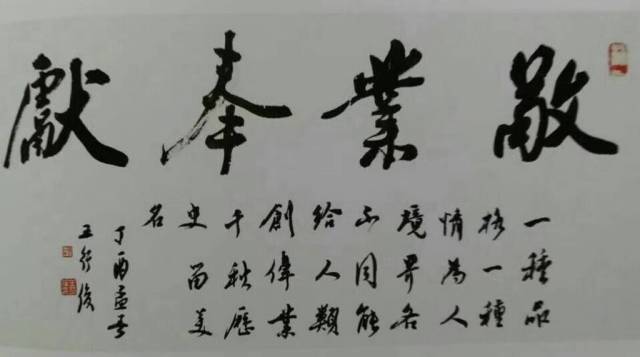 敬業奉獻
一種品
格一種
情為人
境界各
不同能
給人類
創偉業
千秋歷
史留美
名
丁酉孟春
王